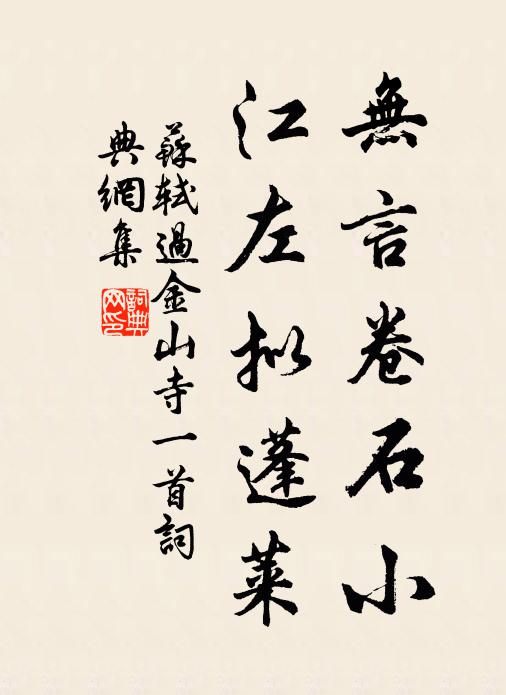 無言卷石小
江左拟蓬萊
蘇軾過金山寺一首詞
典網集
詞典
网印